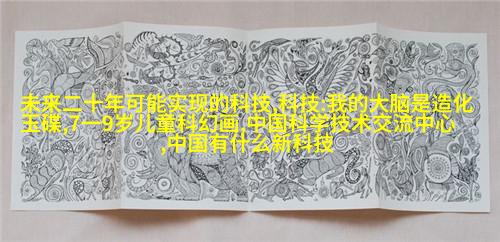 未来二十年可能实现的科技,科技:我的大脑是造化
玉碟,7一9岁儿童科幻画 中国科学技术交流中心
,中国有什么新科技